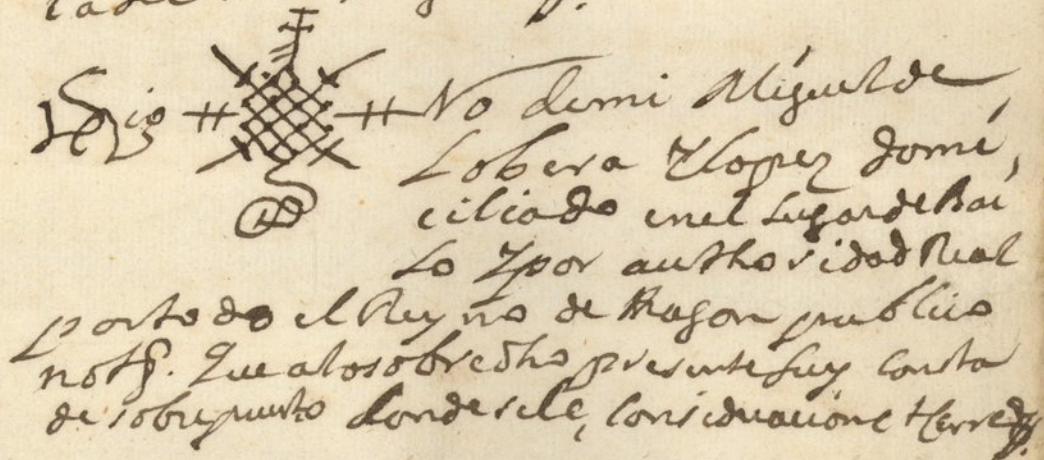 Sig No demi Miguel de
Lobera Y Lopez domi,
ciliado en el Lugar de Bai
lo Y por authoridad Real
por todo el Reyno de Aragon publico
notº. Que a lo sobredho presente fuy consta
de sobrepuesto donde se le, consideracione et cerre